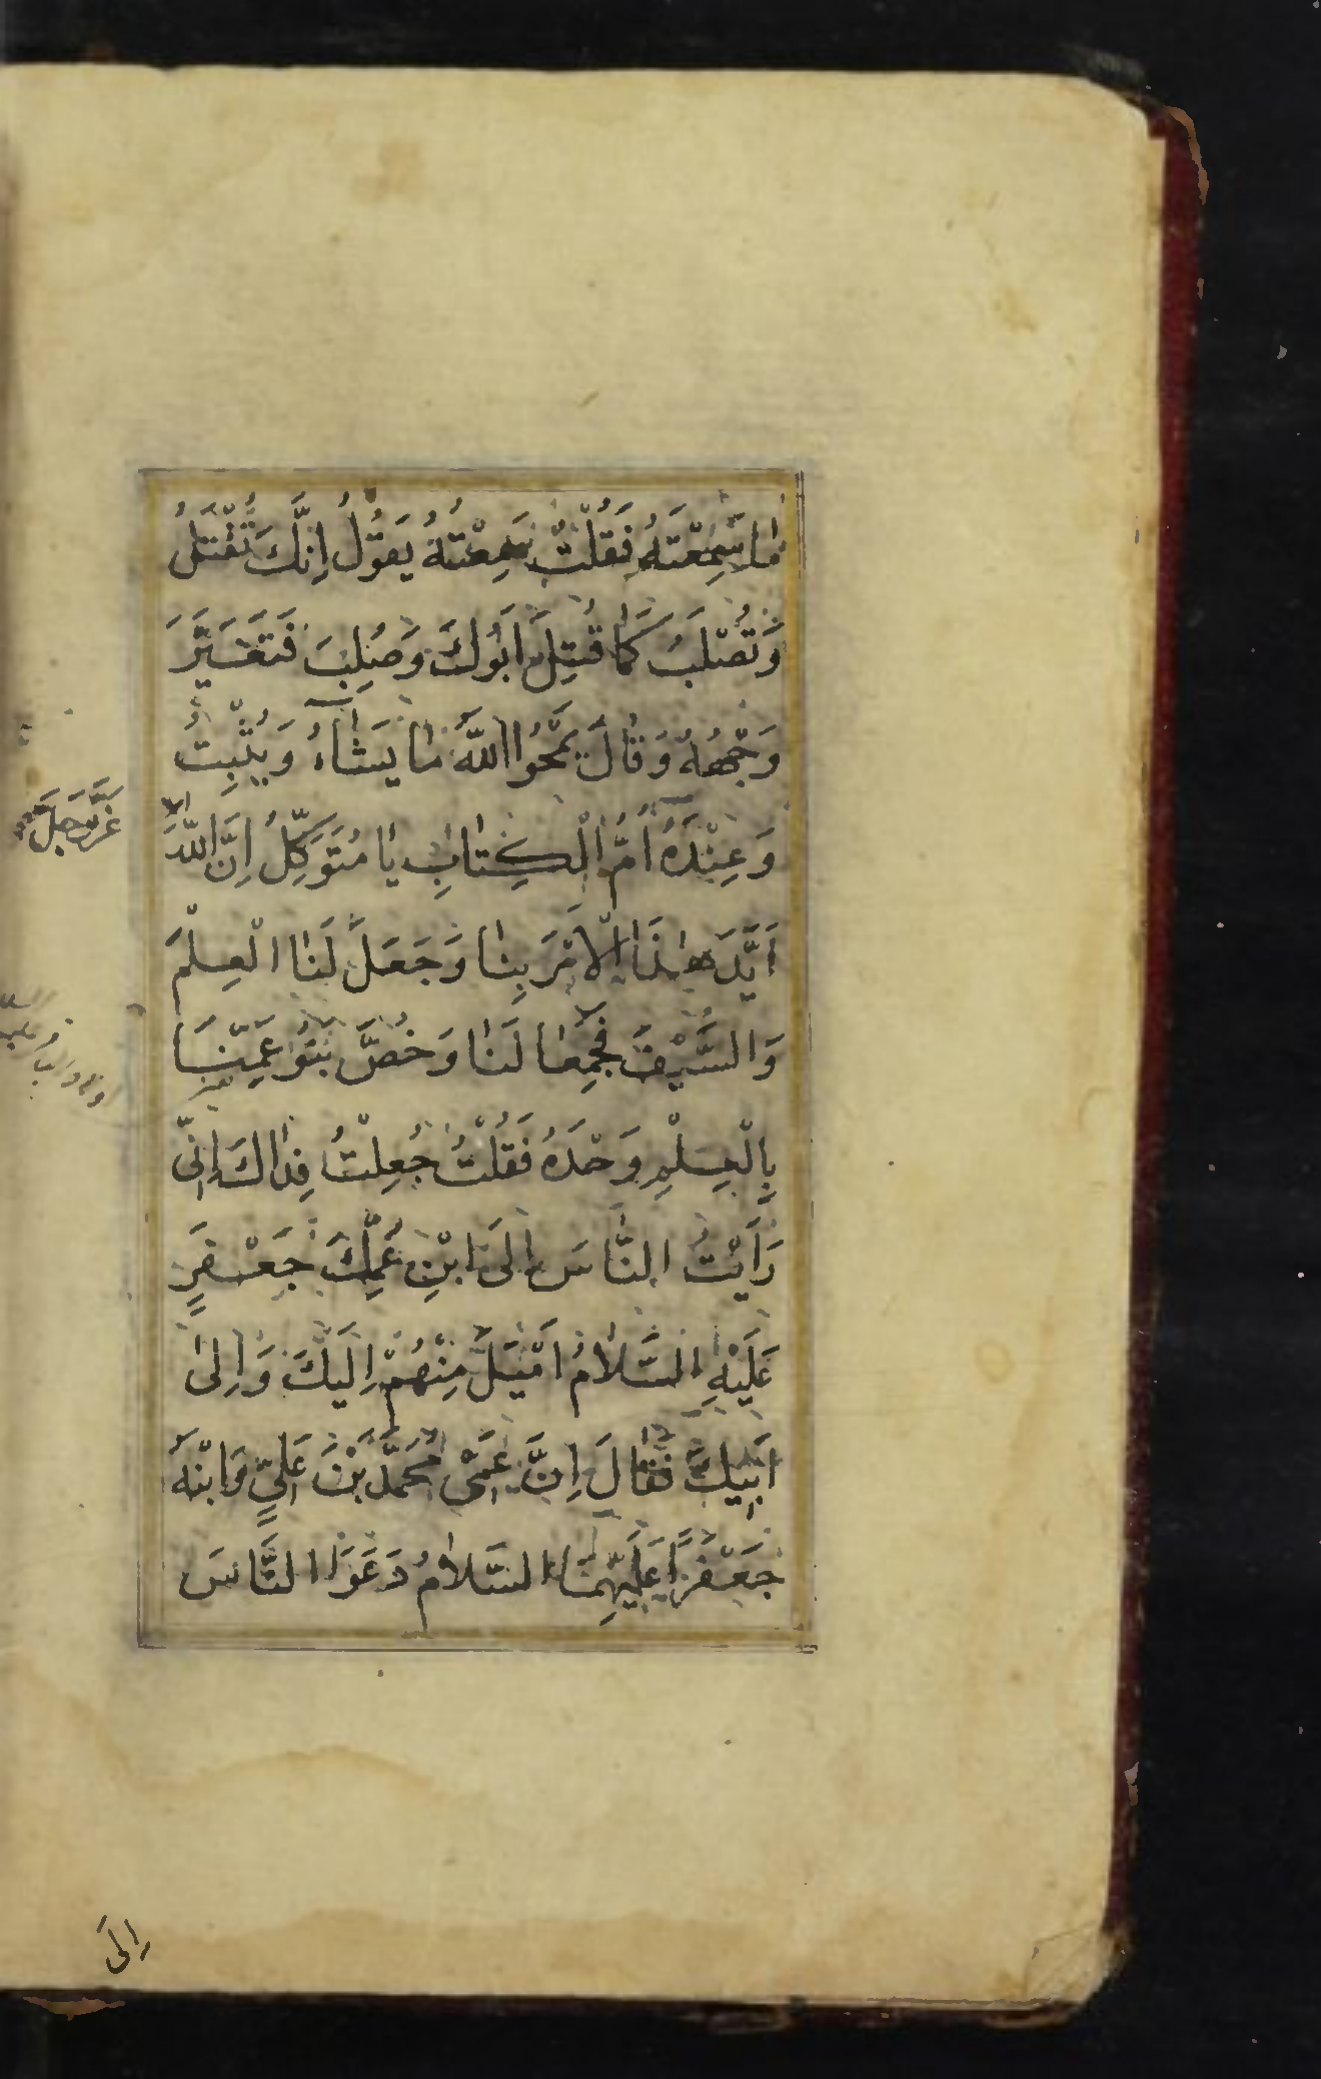 مَا سَمِعْتَهُ فَقُلْتُ سَمِعْتُهُ يَقُولُ إِنَّكَ تُقْتَلُ
وَتُصْلَبُ كَمَا قُتِلَ أَبُوكَ وَصُلِبَ فَتَغَيَّرَ
وَجْهُهُ وَقَالَ يَمْحُوا اللّٰهُ مَا يَشَآءُ وَيُثْبِتُ
وَعِنْدَهُ أُمُّ الْكِتَابِ يَا مُتَوَكِّلُ اِنَّ اللّٰهَ
عَزَّ وَجَلَّ
اَيَّدَ هٰذَا الْاَمْرَ بِنَا وَجَعَلَ لَنَا الْعِلْمَ
وَالسَّيْفَ فَجُمِعَا لَنَا وَخُصَّ بَنُو عَمِّنَا
بِالْعِلْمِ وَحْدَهُ فَقُلْتُ جُعِلْتُ فِدَاكَ اِنِّى
رَاَيْتُ النَّاسَ اِلَى ابْنِ عَمِّكَ جَعْفَرٍ
عَلَيْهِ السَّلَامُ اَمْيَلَ مِنْهُمْ اِلَيْكَ وَاِلىٰ
اَبِيكَ فَقَالَ اِنَّ عَمِّى مُحَمَّدَ بْنَ عَلِىٍّ وَابْنَهُ
جَعْفَرًا عَلَيْهِمَا السَّلَامُ دَعَوَا النَّاسَ
اِلَى